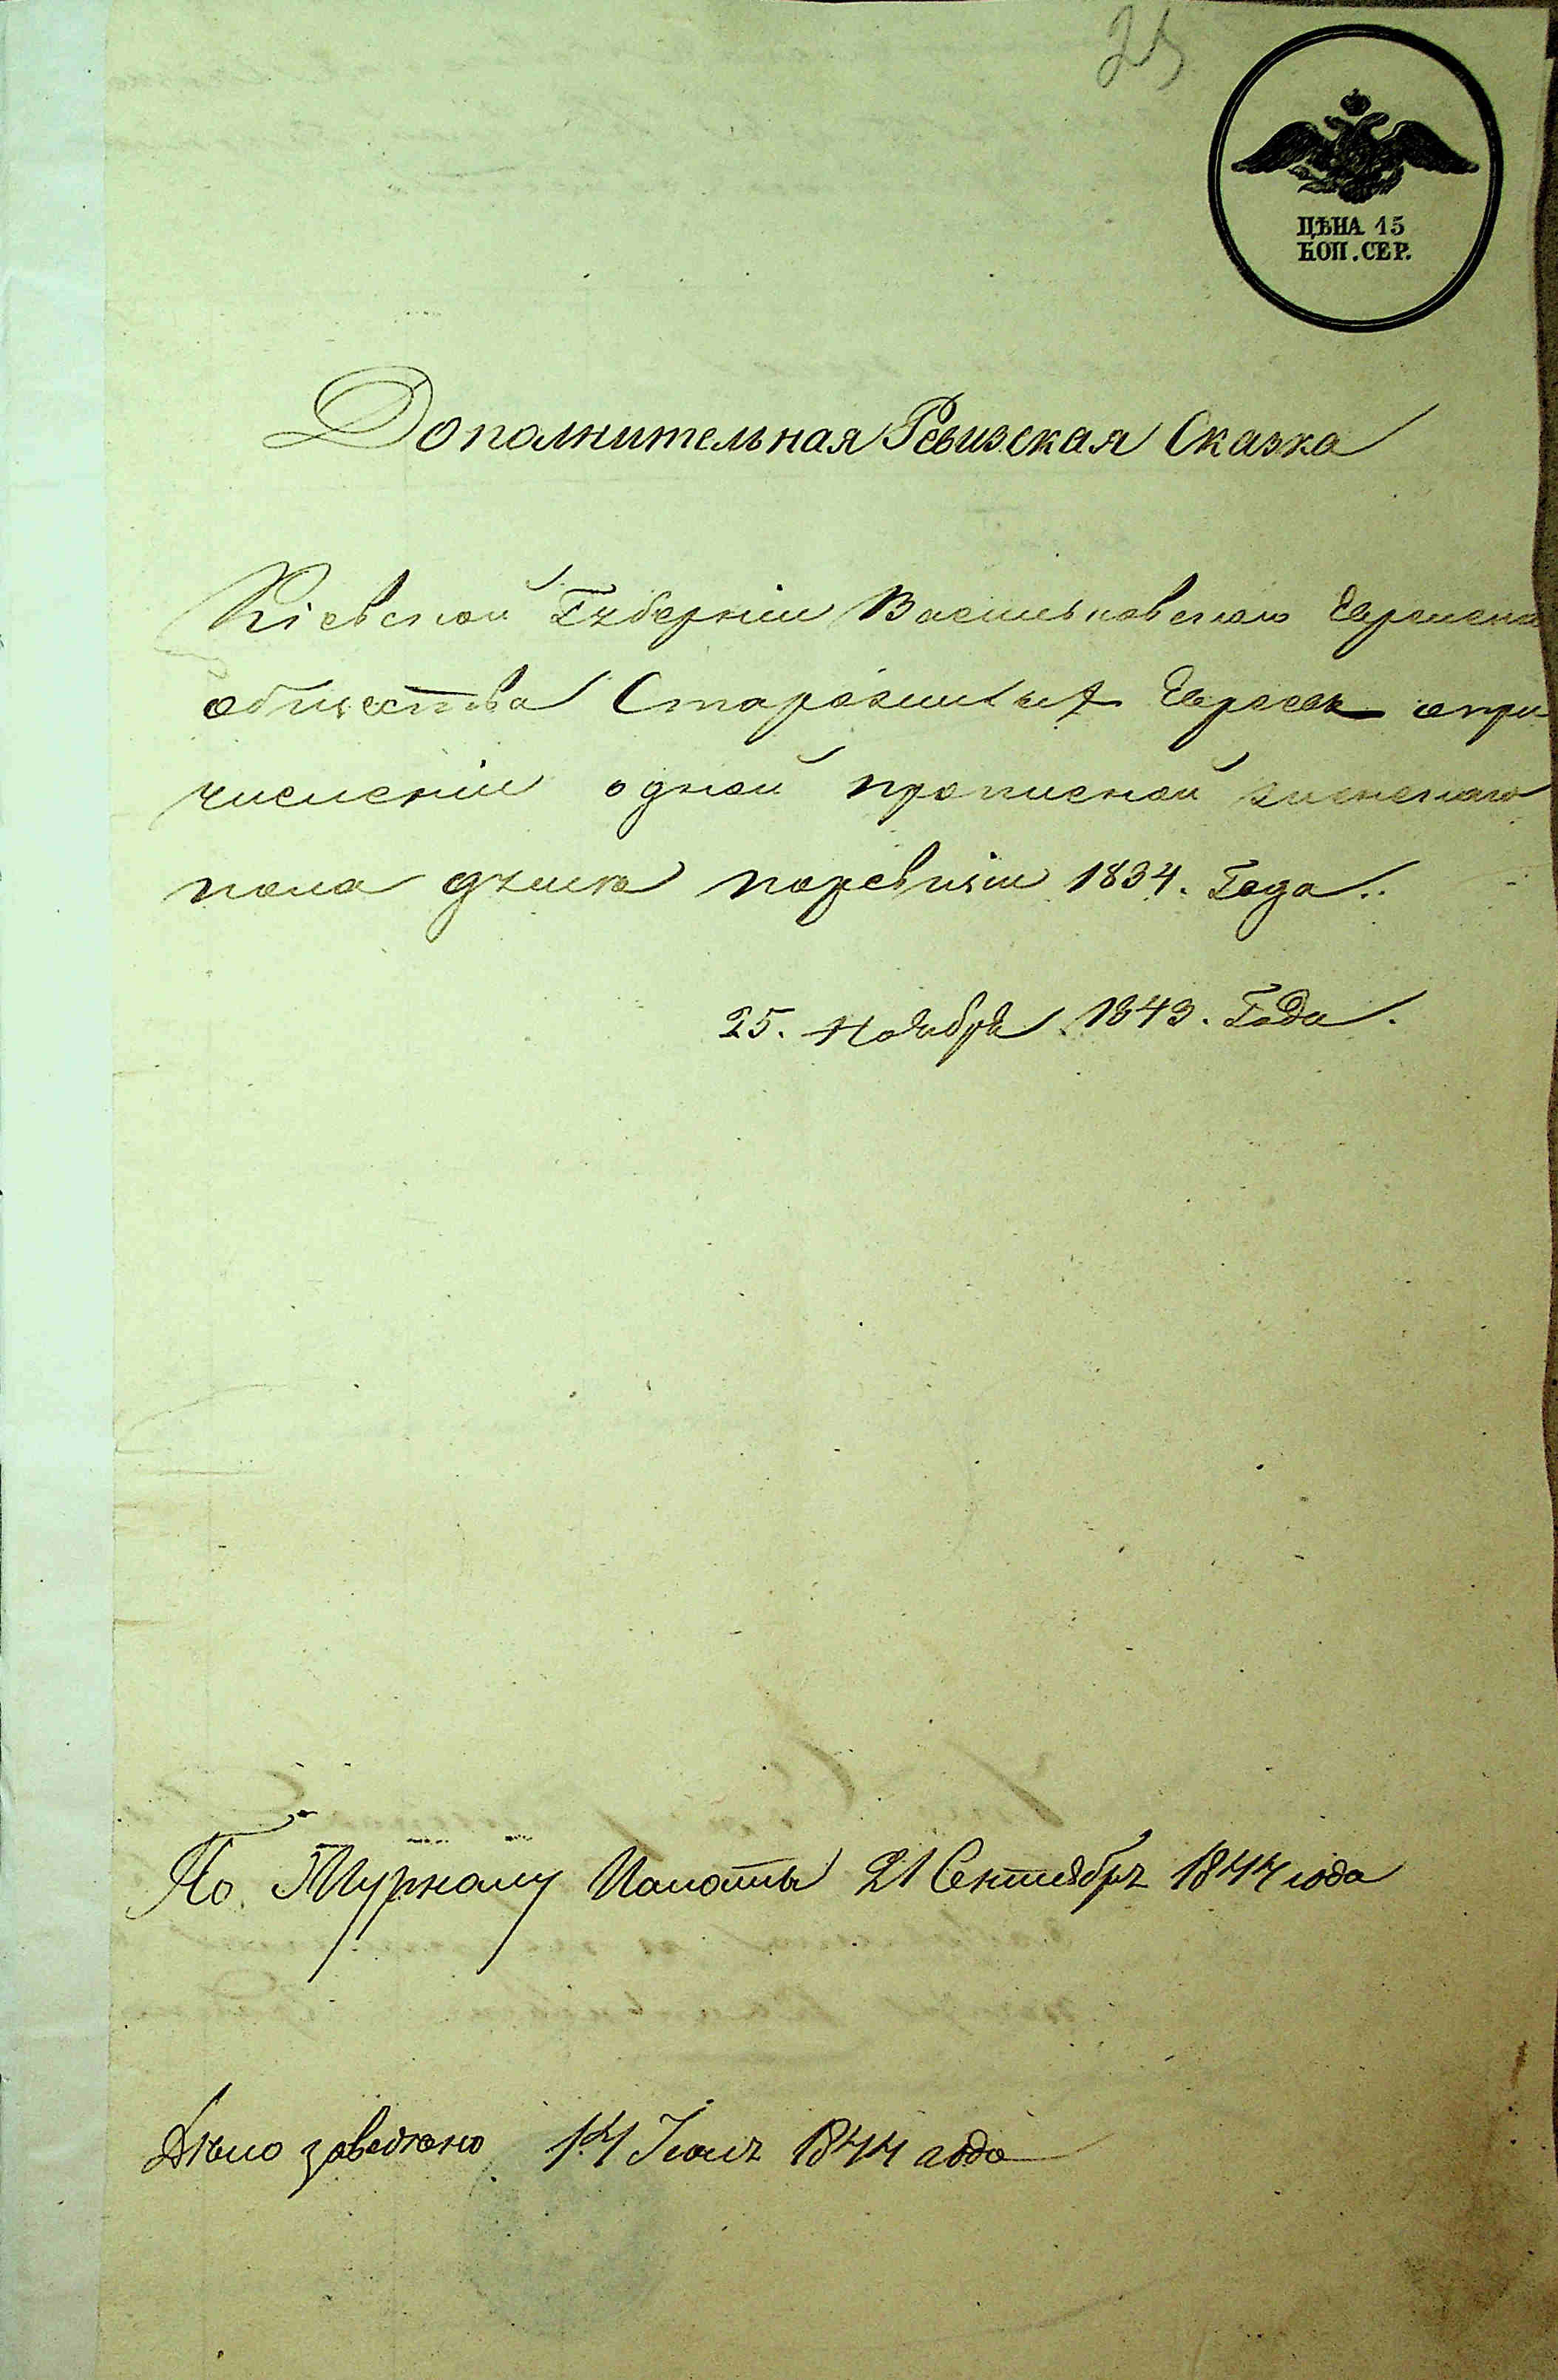 25
ЦѢНА 15
КОП. СЕР.
Дополнительная Ревизская Сказка
Кіевской Губерніи Васильковского Еврейска
общества Старозаконных Евреевъ опри
численіи одной прописной женского
пола душъ поревизіи 1834. Года..
25. Ноября 1843. Года.
По Журналу Палаты 21 Сентября 1844 года
Дѣло заведено 14 Іюля 1844 года